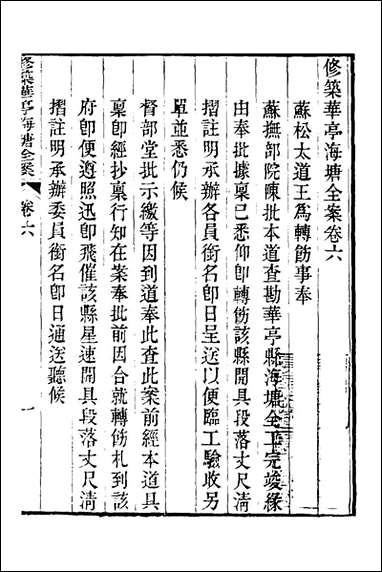 修築華亭海塘全案卷六
蘇松太道王爲轉飭事奉
蘇撫部院陳批本道查勘華亭縣海塘全工完竣緣
由奉批據稟已悉仰卽轉飭該縣開具段落丈尺淸
摺註明承辦各員銜名卽日呈送以便臨工驗收另
單並悉仍候
督部堂批示繳等因到道奉此查此案前經本道具
稟卽經抄稟行知在案奉批前因合就轉飭札到該
府卽便遵照迅卽飛催該縣星速開具段落丈尺淸
摺註明承辦委員銜名卽日通送聽候
修築華亭海塘全案
卷六
一